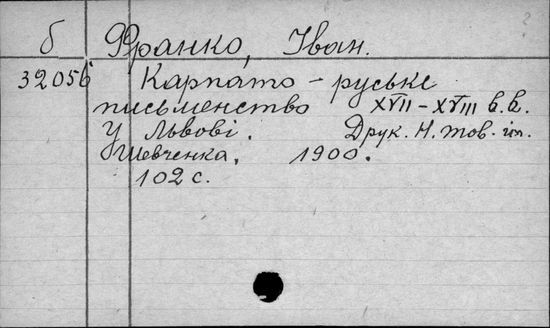 б Франко, Іван.
32056 Карпато-руське
письменство XVII-XVIII в.в.
У Львові. Друк. Н. тов. ім.
Шевченка, 1900.
102 с.